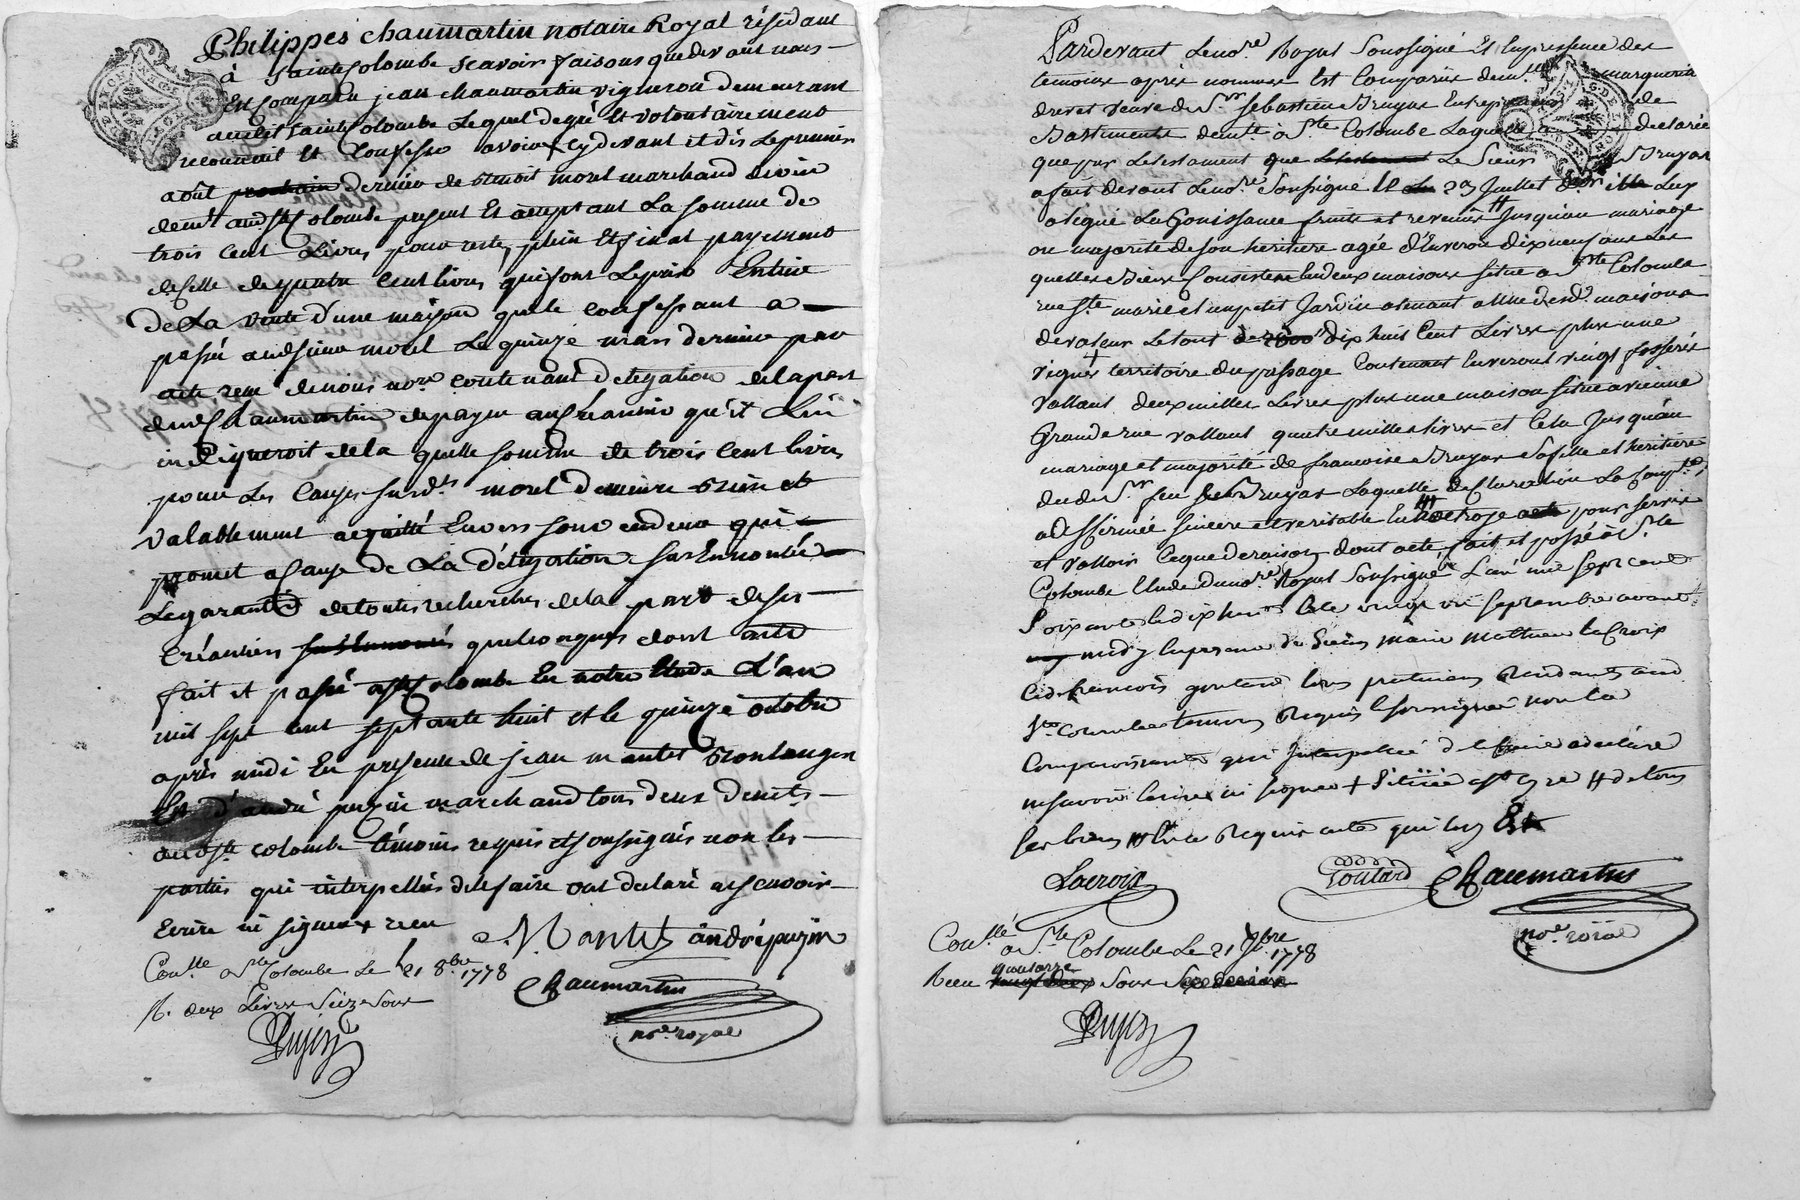 Philippes chaumartin notaire Royal résidant
à Saintecolombe scavoir faisons que devant nous
Est comparu jean chaumartin vigneron demeurant
audit saintecolombe Lequel de gré Et volontairement
reconnoit Et Confesse avoir cydevant et dès Le premier
août prochain dernier de Benoit morel marchand
demt audSteColombe present Et aceptant La somme de
trois Cent Livres pour reste, plein Et final payement
de Celle de quatre Cent livres qui font Le prix Entier
de La vente d'une maison que le confessant a
passé audsieur morel Le quinze mars dernier par
acte reçu de nous nore contenant délégation de la part
dudChaumartin de payer au Creancier qu'il Lui
indiqueroit de la quelle somme de trois Cent livres
pour Les Causes susdts morel demeure Bien et
valablement acquitté Envers Son vendeur qui
promet a Cause de La délégation sus Enoncée
Le garantir de toutes recherches de la part de ses
créanciers quelconques dont acte
fait et passé aSteColombe En notre Etude L'an
mil sept cent septante huit et le quinze octobre
après midi En presence de jean mantet Boulanger
Et d'andré puzin marchand tous deux demts
audSte colombe témoins requis et soussignés non les
parties qui interpellées de le faire ont declaré ne scavoir
Ecrire ni signer x rien
Mantet andré puzin
Conllé a SteColombe Le 21 8bre 1778
Chaumartin
R. deux Livres Seize Sous
nore royal
Pardevant Le nore Royal Soussigné Et En presence des
temoins après nommés Est Comparüe demlle marguerite
drevet veuve de Sr Sebastien Bruyas Entrepreneur de
Bastiments demte à Ste Colombe Laquelle a declarée
que par Le testament que Le Sieur Bruyas
a fait devant Le nore Soussigné 29 Juillet der
a légué La Jouissance fruits et revenus # Jusqu'au mariage
ou majorité de son heritiere agée d'Environ dix neuf ans Les
quelles Biens Consistent En deux maisons situé a Ste Colombe
rue Ste marie et un petit Jardin atenant a l'une desd. maisons
de valeur Le tout de dix huit Cent Livres plus une
vigne + territoire du passage Contenant Environ vingt fosserés
vallant deux milles Livres plus une maison située a vienne
Grande rue vallant quatre milles livres et Cela Jusqu'au
mariage et majorité de francoise Bruyas Sa fille et heritiere
dud Sr feu Bruyas Laquelle declaration La Compte
ad affirmée sincere et veritable pour servir
et valloir Ce que de raison dont acte, fait et passé à Ste
Colombe Etude du nore Royal Soussigné L'an mil sept cent
Soixante dix huit Et le vingt un septembre avant
midy En presence de Sieurs Lacroix
et francois goutard tous praticiens Residants aud
Ste Colombe temoins Requis et soussignés non la
Comparoissante qui Interpellée de le faire a declaré
ne savoir Ecrire ni signer + Située
Ses biens
Lacroix Goutard Chaumartin
nore roial
Conllé a Ste Colombe Le 21 7bre 1778
Recu quatorze Sous